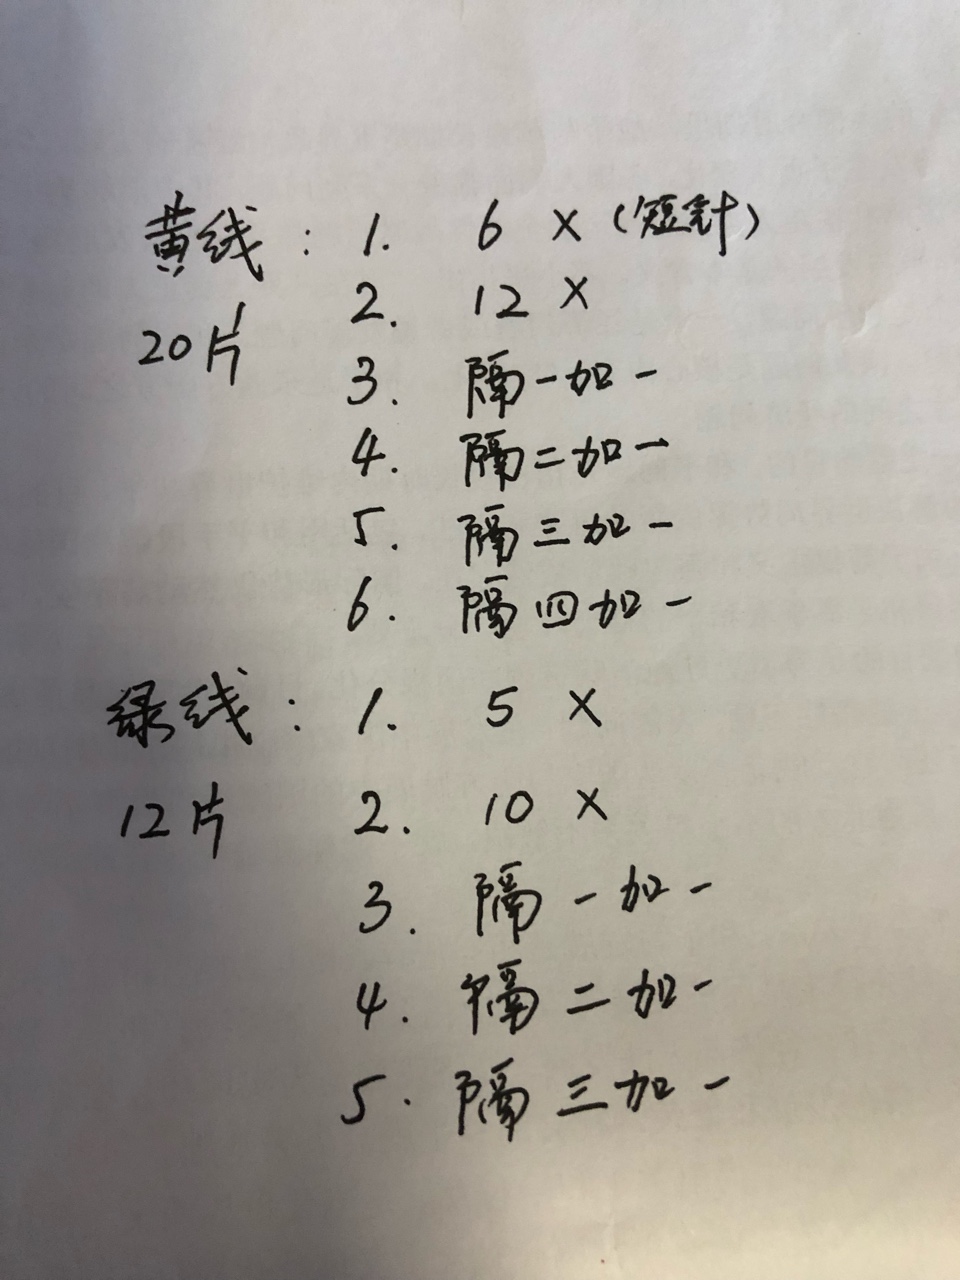 黄线：1. 6 X（短針）
20片 2. 12 X
3. 隔一加一
4. 隔二加一
5. 隔三加一
6. 隔四加一
绿线：1. 5 X
12片 2. 10 X
3. 隔一加一
4. 隔二加一
5. 隔三加一